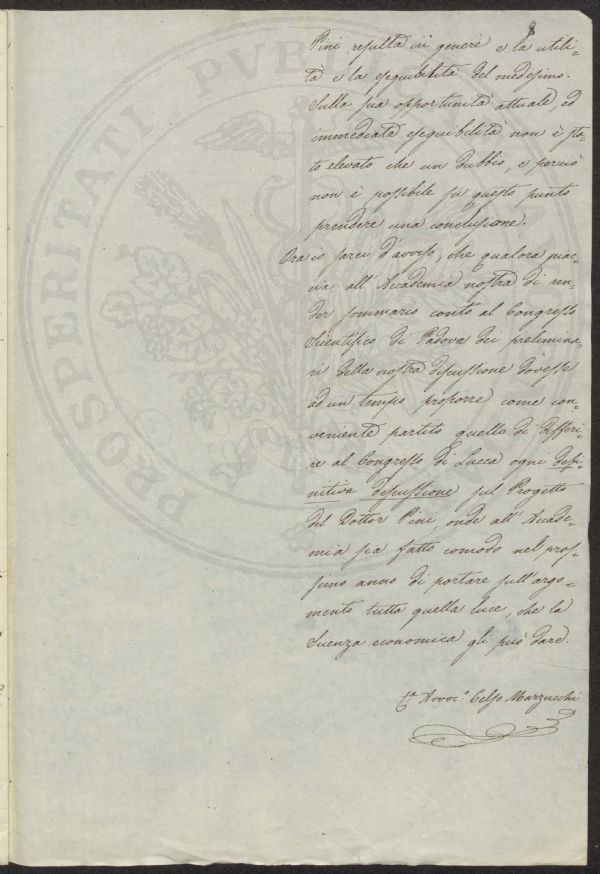 8
Pini resulta in genere e la utili-
tà e la eseguibilità del medesimo.
Sulla sua opportunità attuale, ed
immediata eseguibilità non è sta-
to elevato che un dubbio, e perciò
non è possibile su questo punto
prendere una conclusione.
Ora io sarei d'avviso, che qualora piac-
cia all'Accademia nostra di ren-
der sommario conto al Congresso
Scientifico di Padova dei prelimina-
ri della nostra discussione dovesse
ad un tempo proporre come con-
veniente partito quello di differi-
re al Congresso di Lucca ogni defi-
nitiva discussione sul Progetto
del Dottor Pini, onde all'Accade-
mia sia fatto comodo nel pros-
simo anno di portare sull'argo-
mento tutta quella luce, che la
Scienza economica gli può dare.
Avvoc.º Celso Marzucchi
PROSPERITATI PUBLICAE